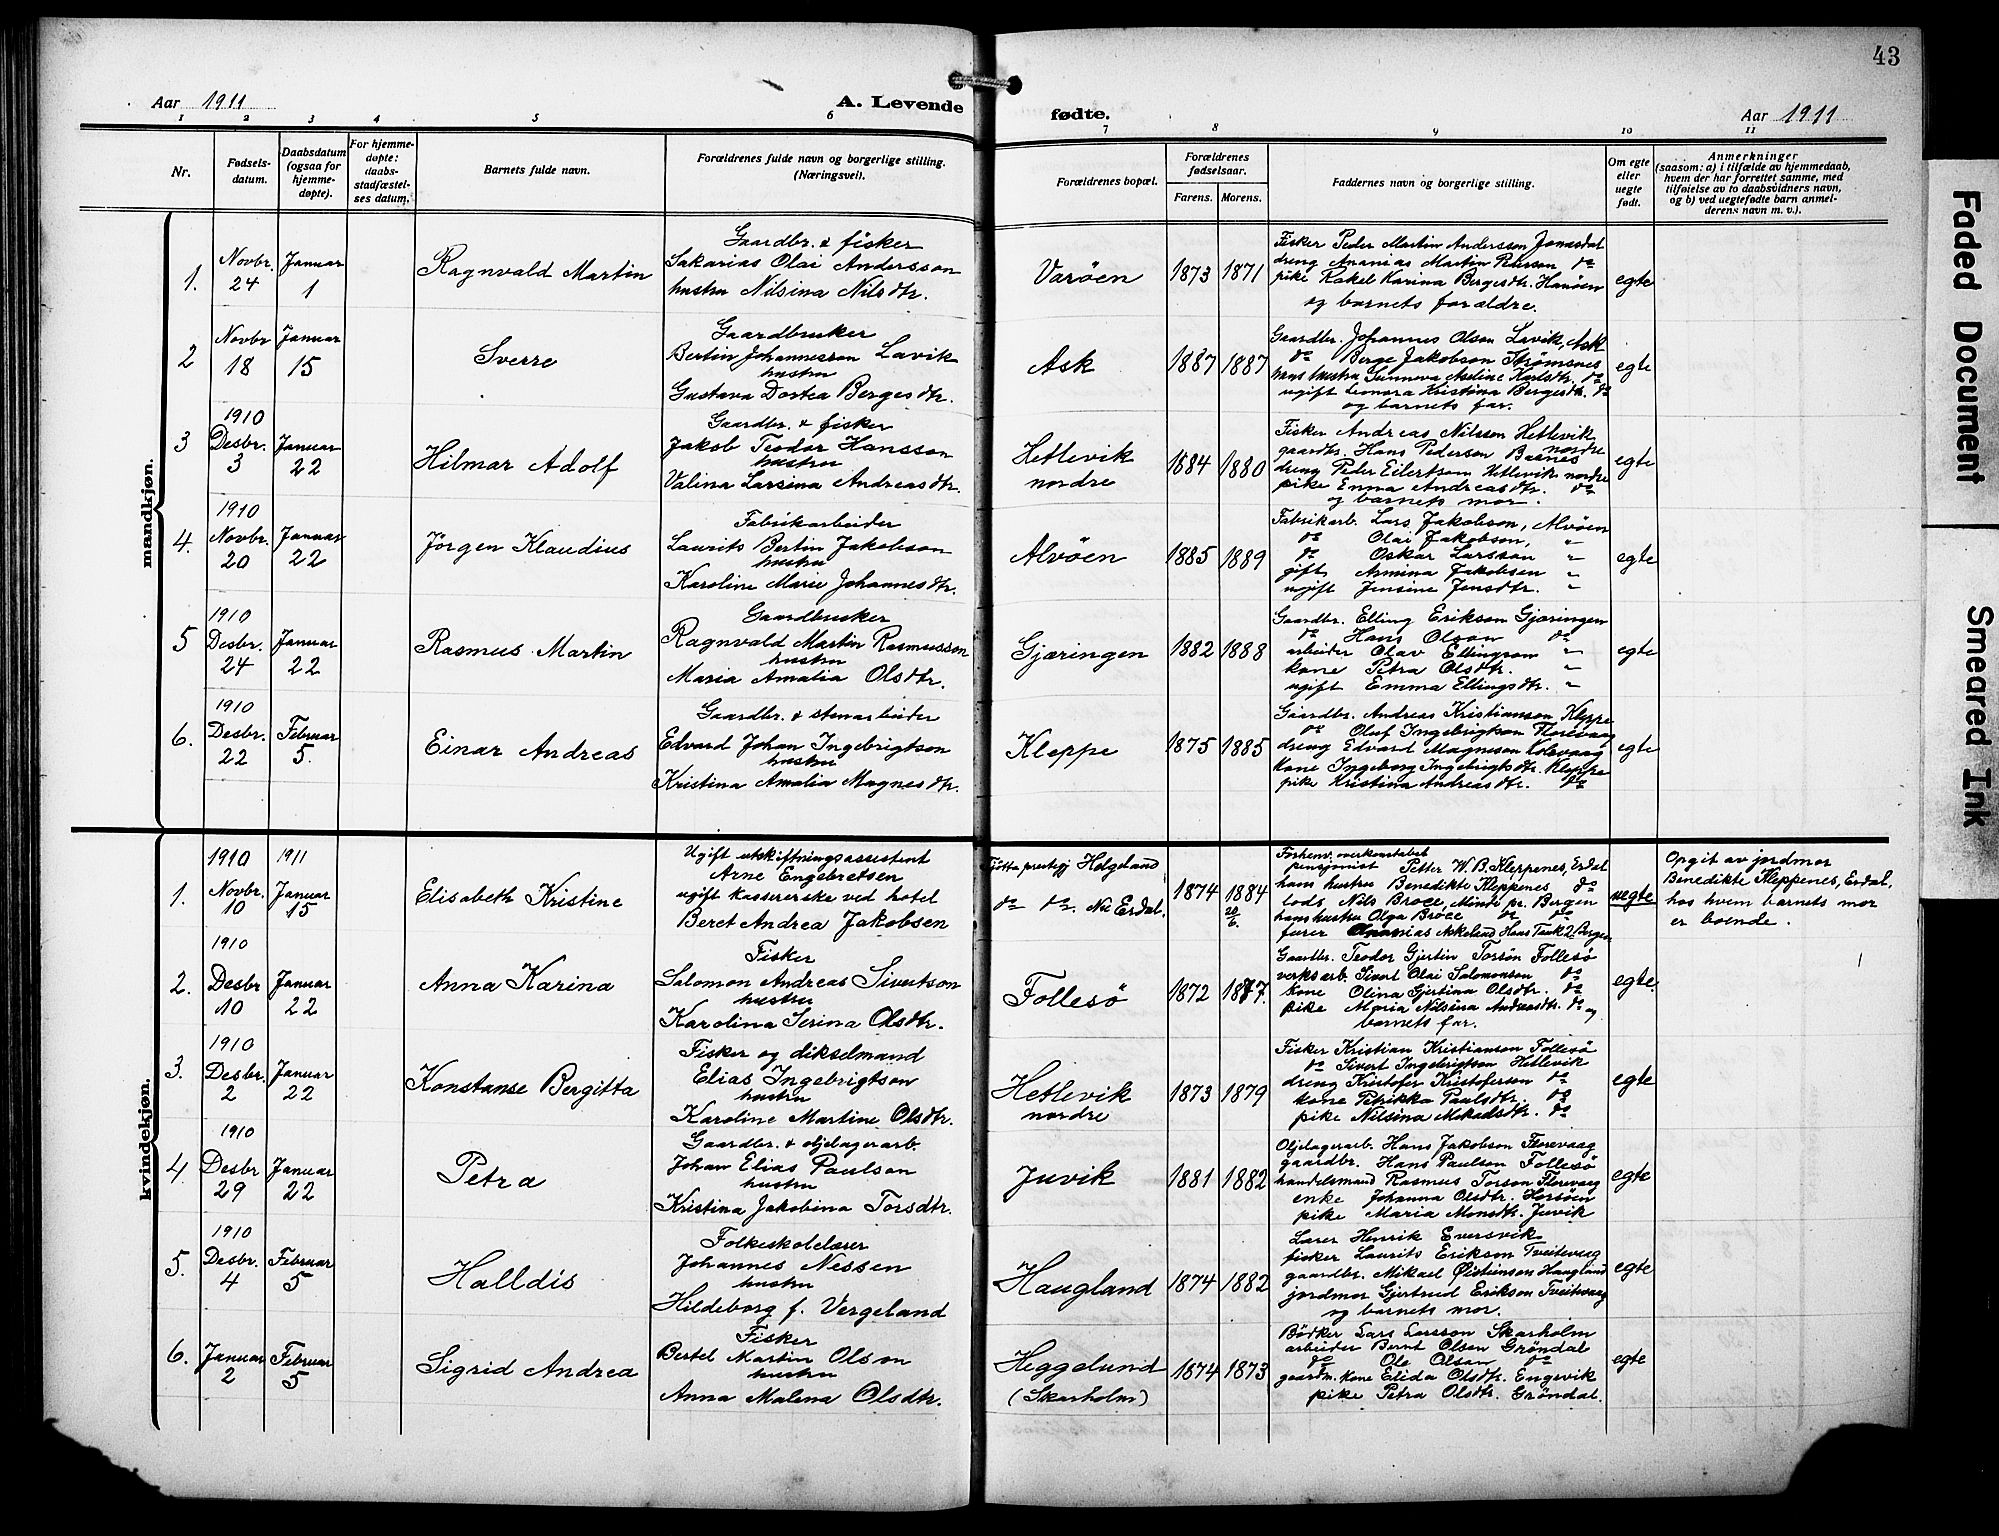 43
Aar 1911
A. Levende
fødte.
Aar 1911
1 2 3 4 5 6 7 8 9 10 11
Nr.
Fødsels-
datum.
Daabsdatum
(ogsaa for
hjemme-
døpte).
For hjemme-
døpte:
daabs-
stadfæstel-
ses datum.
Barnets fulde navn.
Forældrenes fulde navn og borgerlige stilling.
(Næringsvei).
Forældrenes bopæl.
Forældrenes
fødselsaar.
Farens. Morens.
Faddernes navn og borgerlige stilling.
Om egte
eller
uegte
født.
Anmerkninger
(saasom: a) i tilfælde av hjemmedaab,
hvem der har forrettet samme, med
tilføielse av to daabsvidners navn,
og b) ved uegtefødte barn anmel-
derens navn m. v.).
mandkjøn.
1.
Novbr.
24
Januar
1
Ragnvald Martin
Gaardbr. & fisker
Sakarias Olai Andersson
hustru Nilsina Nilsdtr.
Varöen
1873
1871
Fisker Peder Martin Andersson Jonasdal
dreng Ananias Martin Person do
pike Rakel Karina Bergesdtr. Hanöen
og barnets forældre.
egte
2
Novbr
18
Januar
15
Sverre
Gaardbruker
Bertin Johannesson Lavik
hustru
Gustava Dortea Bergesdtr.
Ask
1887
1887
Gaardbr. Johannes Olson Lavik, Ask
do Berge Jakobson Strømsnes
hans hustru Sunneva Axeline Karlsdtr. do
ugift Leonora Kristina Bergesdtr. do
og barnets far.
egte
3
1910
Desbr.
3
Januar
22
Hilmar Adolf
Gaardbr. & fisker
Jakob Teodor Hansson
hustru
Valina Larsina Andreasdtr.
Hetlevik
nordre
1884
1880
Fisker Andreas Nilsson Hetlevik
nordre
gaardbr. Hans Pederson Barnes
dreng Peder Eilertson Hetlevik nordre
pike Emma Andreasdtr. do
og barnets mor.
egte
4.
1910
Novbr.
20
Januar
22
Jörgen Klaudius
Fabrikarbeider
Laurits Bertin Jakobson
hustru
Karoline Marie Johannesdtr.
Alvöen
1885
1889
Fabrikarb. Lars Jakobson, Alvöen
do Olai Jakobson, "
do Oskar Larsson "
gift Armina Jakobsen "
ugift Jensine Jensdtr. "
egte
5
1910
Desbr.
24
Januar
22
Rasmus Martin
Gaardbruker
Ragnvald Martin Rasmusson
hustru
Maria Amalia Olsdtr.
Gjæringen
1882
1888
Gaardbr. Elling Erikson Gjæringen
do Hans Olson do
arbeider Olav Ellingson "
kone Petra Olsdtr. "
ugift Emma Ellingsdtr. "
egte
6.
1910
Desbr.
22
Februar
5.
Einar Andreas
Gaardbr. & stenarbeider
Edvard Johan Ingebrigtson
hustru
Kristina Amalia Magnesdtr.
Kleppe
1875
1885
Gaardbr. Andreas Kristianson Kleppe
do Oluf Ingebrigtson Florevaag
dreng Edvard Magneson
kone Ingeborg Ingebrigtsdtr. Kleppe
pike Kristina Andreasdtr. do
egte
kvindekjøn.
1.
1910
Novbr.
10
1911
Januar
15
Elisabeth Kristine
Ugift utskiftningsassistent
Arne Engebretsen
ugift kassererske ved hotel
Beret Andrea Jakobsen
Tjötta prestegj Helgeland
do do. Nu Erdal.
1874
1884
20/6.
Forhenv. overkonstabel
pensionist Petter W. B. Kleppenes, Erdal
hans hustru Benedikte Kleppenes do
lods Nils Broce, Minde pr. Bergen
hans hustru Olga Broce do do
fører Ananias Askeland Hans Tank 2. Bergen
uegte
Opgit av jordmor
Benedikte Kleppenes, Erdal,
hos hvem barnets mor
er boende.
2.
1910
Desbr
10
Januar
22
Anna Karina
Fisker
Salomon Andreas Sivertson
hustru
Karolina Serina Olsdtr.
Follesö
1872
1877.
Gaardbr. Teodor Gjertin Torsön Follesö
verksarb. Sivert Olai Salomonson do
kone Olina Gjertina Olsdtr. do
pike Maria Nilsina Andreasdtr. do og
barnets far.
egte.
3.
1910
Desbr.
2
Januar
22
Konstanse Bergitta
Fisker og dikselmand
Elias Ingebrigtson
hustru
Karoline Martine Olsdtr.
Hetlevik
nordre
1873
1879
Fisker Kristian Kristianson Follesö
do Sivert Ingebrigtson Hetlevik
dreng Kristofer Kristoferson do
kone Petrikka Paulsdtr. do
pike Nilsina Mikalsdtr. do
egte
4.
1910
Desbr
29
Januar
22
Petra
Gaardbr. & oljelagerarb.
Johan Elias Paulson
hustru
Kristina Jakobina Torsdtr.
Juvik
1881
1882
Oljelagerarb. Hans Jakobson Florevaag
gaardbr. Hans Paulson Follesö
handelsmand Rasmus Torson Florevaag
enke Johanna Olsdtr. Horsöen
pike Maria Monsdtr. Juvik
egte
5.
1910
Desbr.
4
Februar
5
Halldis
Folkeskolelærer
Johannes Nessen
hustru
Hildeborg f. Vergeland
Haugland
1874
1882
Lærer Henrik Eversvik
fisker Laurits Erikson Tveitevaag
gaardbr. Mikael Öisteinson Haugland
jordmor Gjertrud Erikson Tveitevaag
og barnets mor.
egte
6.
Januar
2
Februar
5
Sigrid Andrea
Fisker
Bertel Martin Olson
hustru
Anna Malena Olsdtr.
Heggelund
(Skarholm)
1874
1873
Bödker Lars Larsson Skarholm
arbeider Bernt Olsen Gröndal
do Ole Olson do
gaardm. kone Elida Olsdtr. Engevik
pike Petra Olsdtr. Gröndal.
egte
Faded Document
Smeared Ink